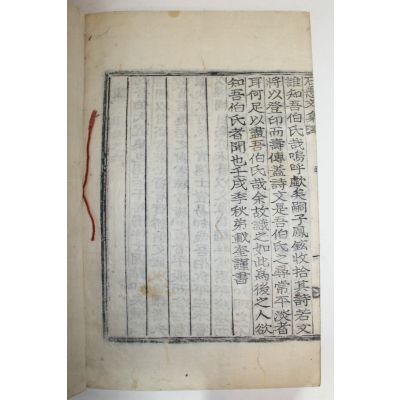 誰知吾伯氏哉嗚呼歔矣嗣子鳳鉉收拾其詩若文
將以登印而壽傳蓋詩文是吾伯氏之尋常平淡者
耳何足以盡吾伯氏哉余故識之如此爲後之人欲
知吾伯氏者聞也壬戌季秋弟載奎謹書